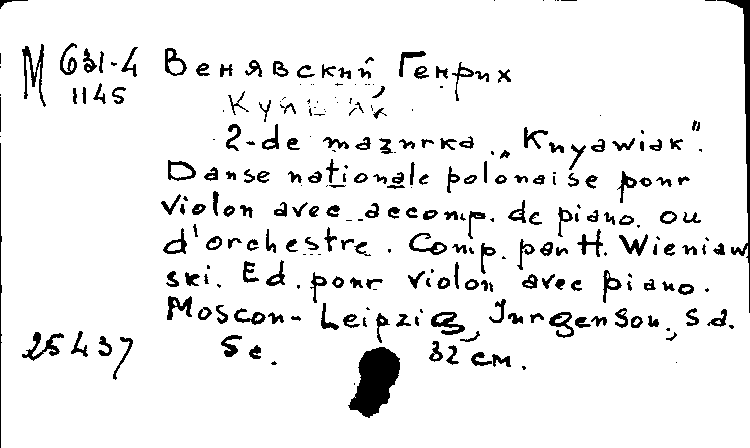 М 631-4 Венявский, Генрих
1145
Куявяк
2-de mazurka „Knyawiak".
Danse nationale polonaise pour
violon avec accomp. de piano ou
d'orchestre. Comp. par H. Wieniaw
ski. Ed. pour violon avec piano.
Moscou-Leipzig, Jurgenson, s.d.
25437 5 c. 32 см.